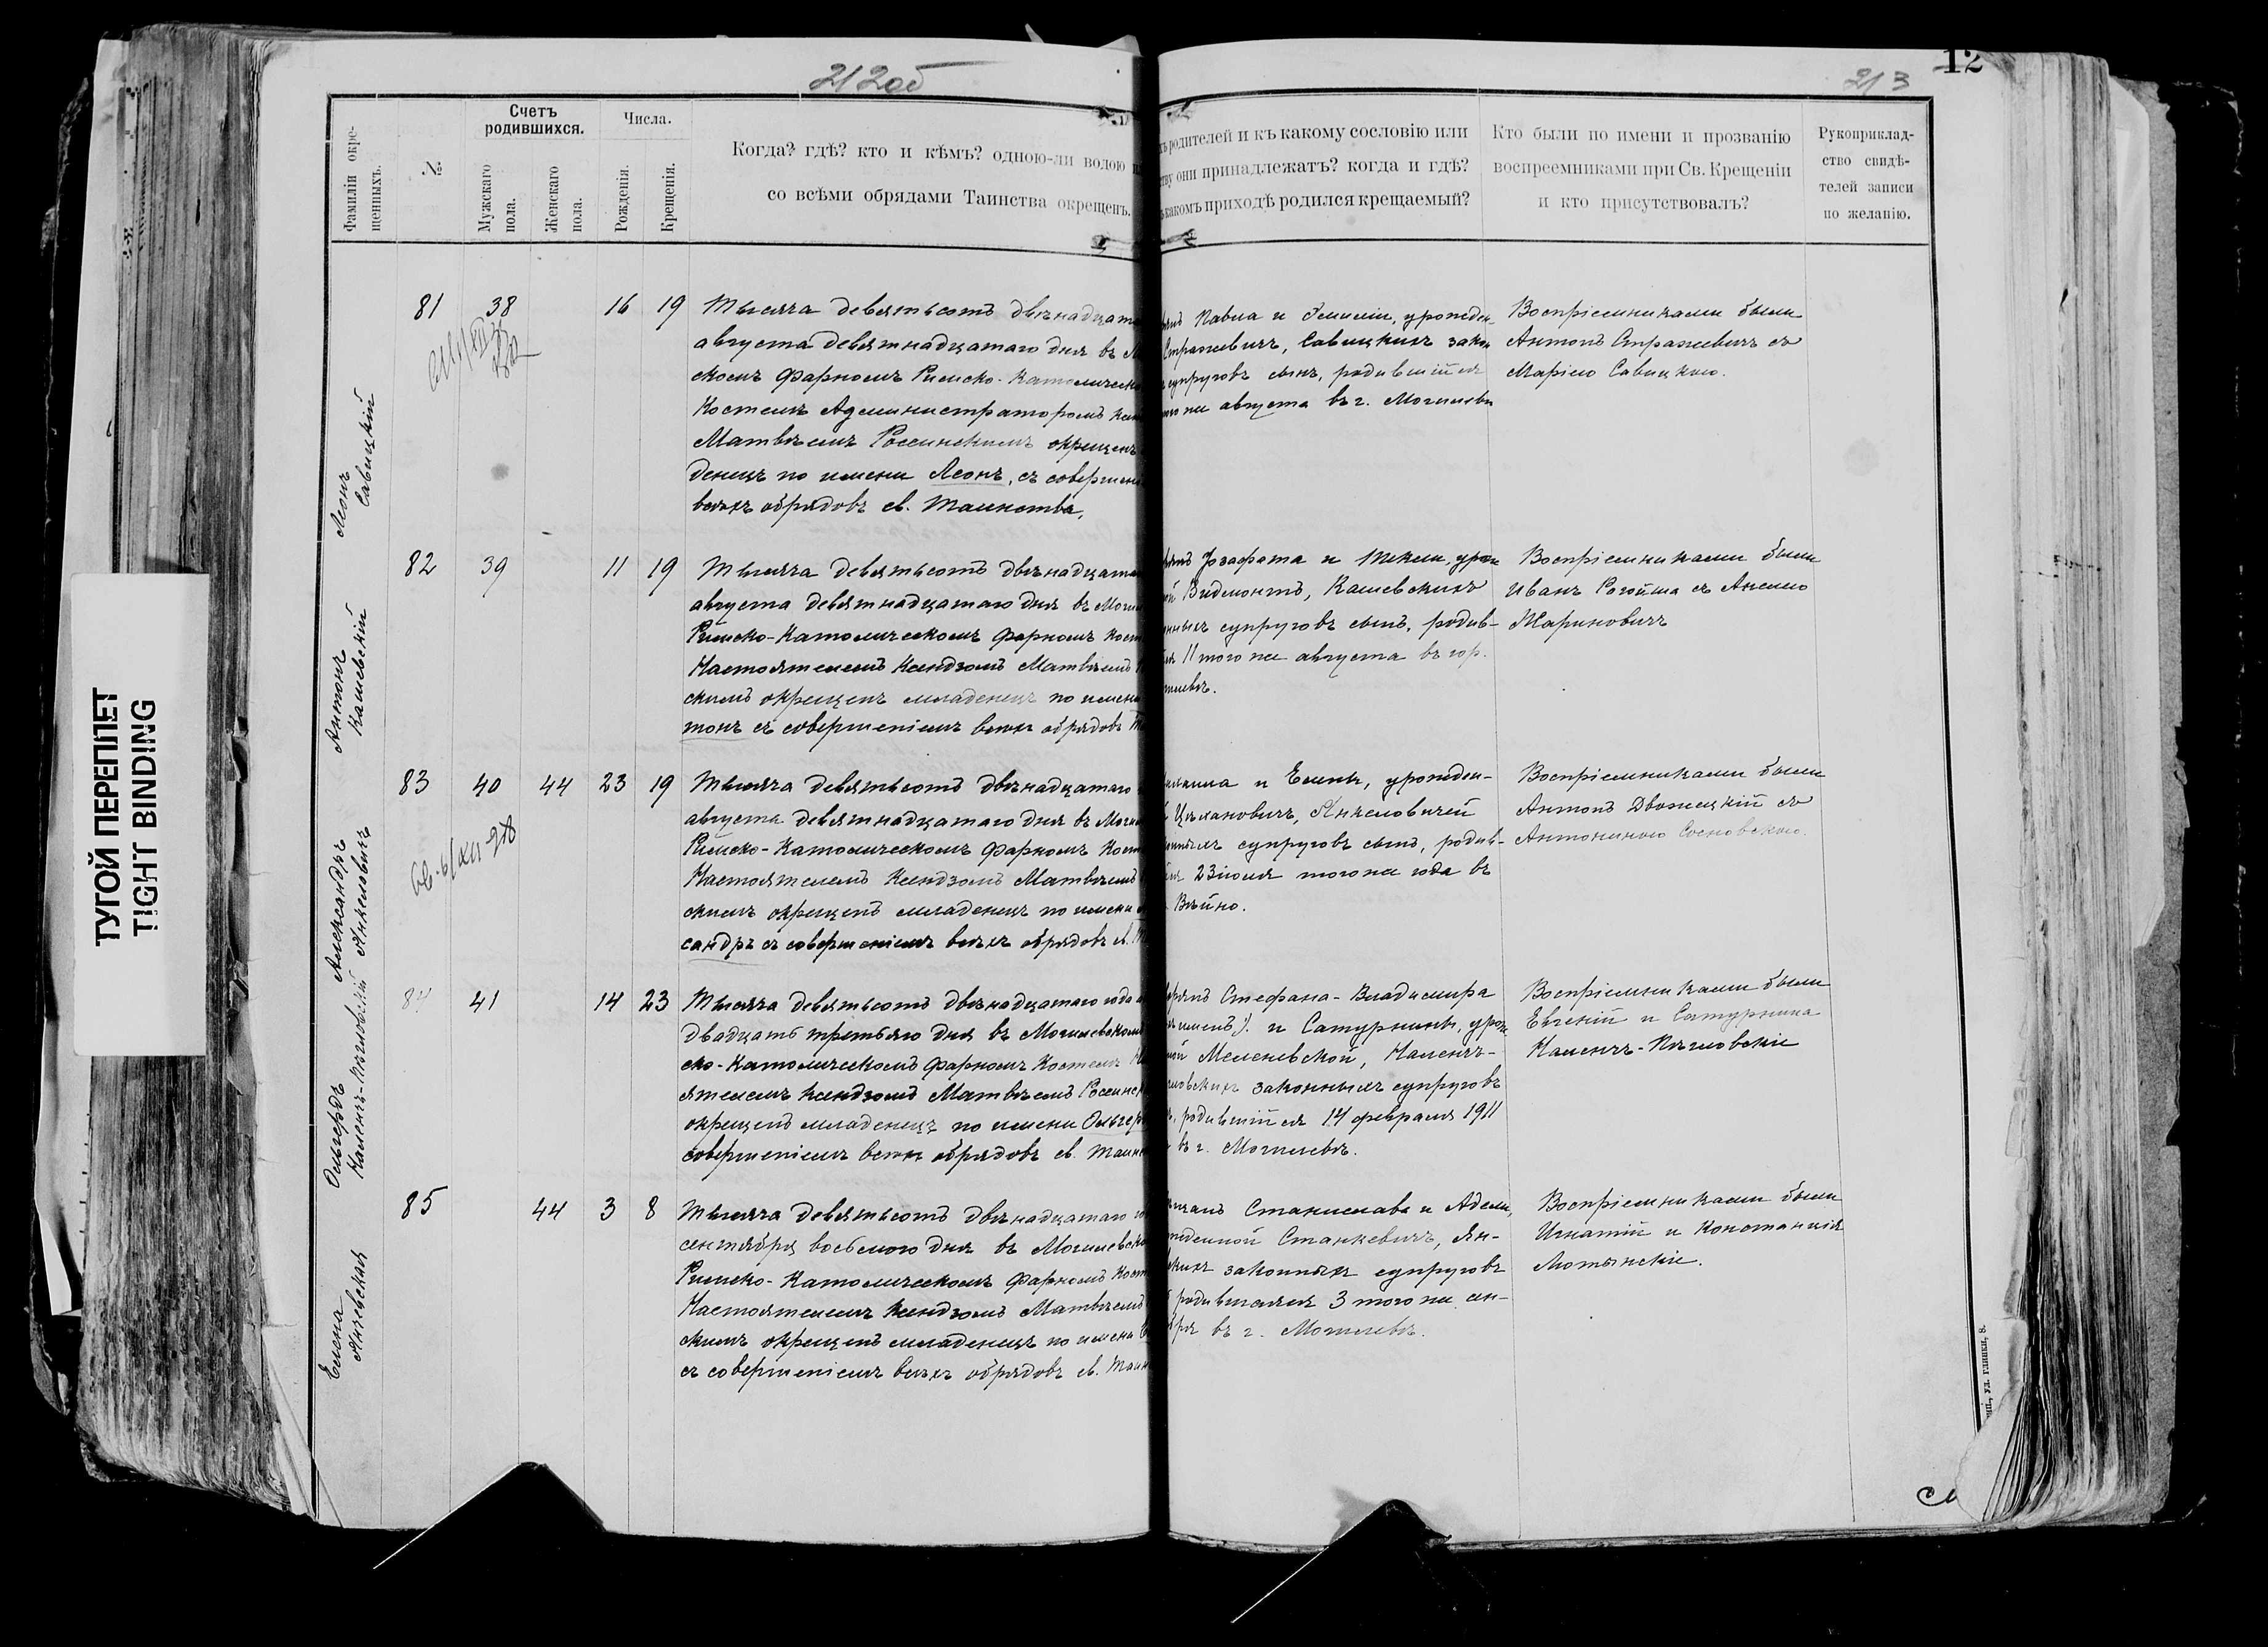 212об
213
12
ТУГОЙ ПЕРЕПЛЕТ
TIGHT BINDING
Фамиліи окре-
щенныхъ.
№
Счетъ
родившихся.
Мужскаго
пола.
Женскаго
пола.
Числа.
Рожденія.
Крещенія.
Когда? гдѣ? кто и кѣмъ? одною-ли водою
со всѣми обрядами Таинства окрещенъ.
родителей и къ какому сословію или
они принадлежатъ? когда и гдѣ?
какомъ приходѣ родился крещаемый?
Кто были по имени и прозванію
воспреемниками при Св. Крещеніи
и кто присутствовалъ?
Рукоприклад-
ство свидѣ-
телей записи
по желанію.
Леонъ
Савицкій
81 38 16 19
Тысяча девятьсотъ двѣнадцата
августа девятнадцатаго дня въ М
скомъ Фарномъ Римско-Католическо
Костелѣ Администраторомъ
Матвѣемъ Россинскимъ окрещенъ
денецъ по имени Леонъ, съ совершені
всѣхъ обрядовъ св. Таинства.
Павла и Эмиліи, урожден-
Стражевичъ, Савицкихъ закон
супруговъ сынъ, родившійся
же августа въ г. Могилевѣ
Воспріемниками были
Антонъ Стражевичъ съ
Маріею Савицкою.
Антонъ
Кашевскій
82 39 11 19
Тысяча девятьсотъ двѣнадцата
августа девятнадцатаго дня въ Моги
Римско-Католическомъ Фарномъ Кост
Настоятелемъ Ксендзомъ Матвѣемъ
скимъ окрещенъ младенецъ по имени
тонъ съ совершеніемъ всѣхъ обрядовъ
Іозафата и Текли, урож
Видмонтъ, Кашевскихъ
нныхъ супруговъ сынъ, родив-
11 того же августа въ гор.
гилевѣ.
Воспріемниками были
Иванъ Рогойша съ Анелею
Мариновичъ
Александръ
Янкеловичъ
83 40 44 23 19
Тысяча девятьсотъ двѣнадцатаго
августа девятнадцатаго дня въ Моги
Римско-Католическомъ Фарномъ Кост
Настоятелемъ Ксендзомъ Матвѣемъ
скимъ окрещенъ младенецъ по имени
сандръ съ совершеніемъ всѣхъ обрядовъ св.
и Елены, урожден-
Цѣхановичъ, Янкеловичей
супруговъ сынъ, родив-
23 іюля того же года въ
Вѣйно.
Воспріемниками были
Антонъ Двожецкій съ
Антониною Сосновскою.
Ольгердъ
84 41 14 23
Тысяча девятьсотъ двѣнадцатаго года
двадцать третьяго дня въ Могилевскомъ
ско-Католическомъ Фарномъ Костелѣ
ятелемъ Ксендзомъ Матвѣемъ Россинск
окрещенъ младенецъ по имени Ольгер
совершеніемъ всѣхъ обрядовъ св. Таин
Стефана-Владимира
и Сатурнины, урож
Меленевской,
законныхъ супруговъ
родившійся 14 февраля 1911
въ г. Могилевѣ.
Воспріемниками были
Евгеній и Сатурнина
Елена
85 44 3 8
Тысяча девятьсотъ двѣнадцатаго
сентября восьмого дня въ Могилевско
Римско-Католическомъ Фарномъ Кост
Настоятелемъ Ксендзомъ Матвѣемъ
скимъ окрещенъ младенецъ по имени
съ совершеніемъ всѣхъ обрядовъ св. Таин
Станислава и Адели,
жденной Станкевичъ, Ян-
скихъ законныхъ супруговъ
родившаяся 3 того же сен-
бря въ г. Могилевѣ.
Воспріемниками были
Игнатій и Констанція
Мотынскіе.
ул. Глинки, 8.